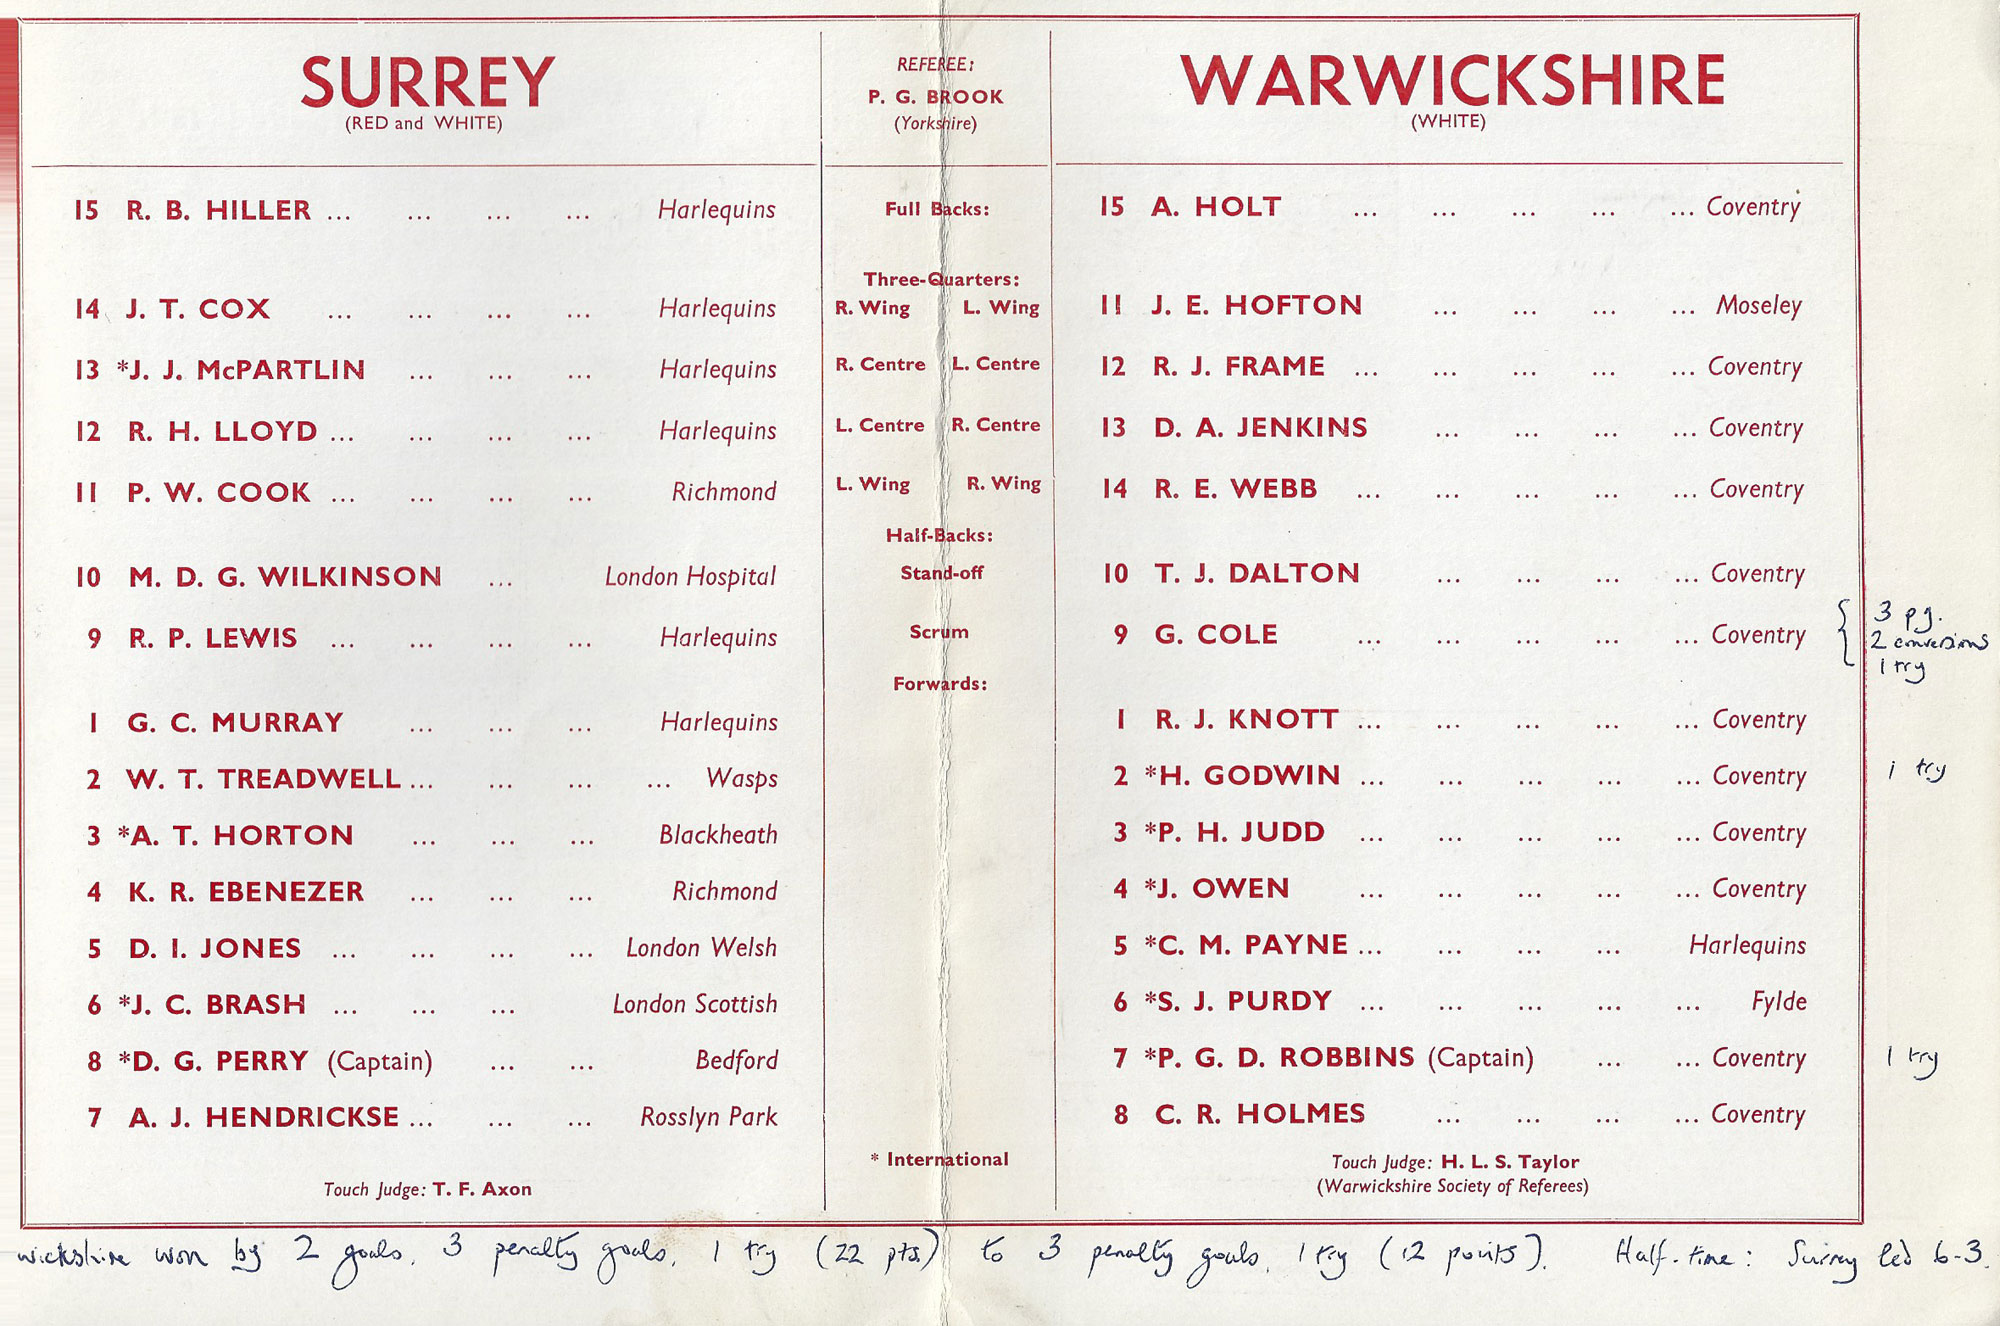 SURREY
(RED and WHITE)
REFEREE:
P. G. BROOK
(Yorkshire)
WARWICKSHIRE
(WHITE)
15 R. B. HILLER ... ... ... ... Harlequins
Full Backs:
15 A. HOLT ... ... ... ... ... Coventry
Three-Quarters:
14 J. T. COX ... ... ... ... Harlequins
R. Wing L. Wing
11 J. E. HOFTON ... ... ... ... Moseley
13 *J. J. McPARTLIN ... ... ... Harlequins
R. Centre L. Centre
12 R. J. FRAME ... ... ... ... ... Coventry
12 R. H. LLOYD ... ... ... ... Harlequins
L. Centre R. Centre
13 D. A. JENKINS ... ... ... ... Coventry
11 P. W. COOK ... ... ... ... Richmond
L. Wing R. Wing
14 R. E. WEBB ... ... ... ... ... Coventry
Half-Backs:
10 M. D. G. WILKINSON ... London Hospital
Stand-off
10 T. J. DALTON ... ... ... ... Coventry
9 R. P. LEWIS ... ... ... ... Harlequins
Scrum
9 G. COLE ... ... ... ... ... Coventry
3 pg.
2 conversions
1 try
Forwards:
1 G. C. MURRAY ... ... ... Harlequins
1 R. J. KNOTT ... ... ... ... ... Coventry
2 W. T. TREADWELL ... ... ... ... Wasps
2 *H. GODWIN ... ... ... ... ... Coventry
1 try
3 *A. T. HORTON ... ... ... Blackheath
3 *P. H. JUDD ... ... ... ... ... Coventry
4 K. R. EBENEZER ... ... ... Richmond
4 *J. OWEN ... ... ... ... ... Coventry
5 D. I. JONES ... ... ... ... London Welsh
5 *C. M. PAYNE ... ... ... ... Harlequins
6 *J. C. BRASH ... ... ... London Scottish
6 *S. J. PURDY ... ... ... ... ... Fylde
8 *D. G. PERRY (Captain) ... ... Bedford
7 *P. G. D. ROBBINS (Captain) ... ... Coventry
1 try
7 A. J. HENDRICKSE ... ... ... Rosslyn Park
8 C. R. HOLMES ... ... ... ... Coventry
* International
Touch Judge: T. F. Axon
Touch Judge: H. L. S. Taylor
(Warwickshire Society of Referees)
wickshire won by 2 goals, 3 penalty goals, 1 try (22 pts.) to 3 penalty goals, 1 try (12 points). Half-time: Surrey led 6-3.